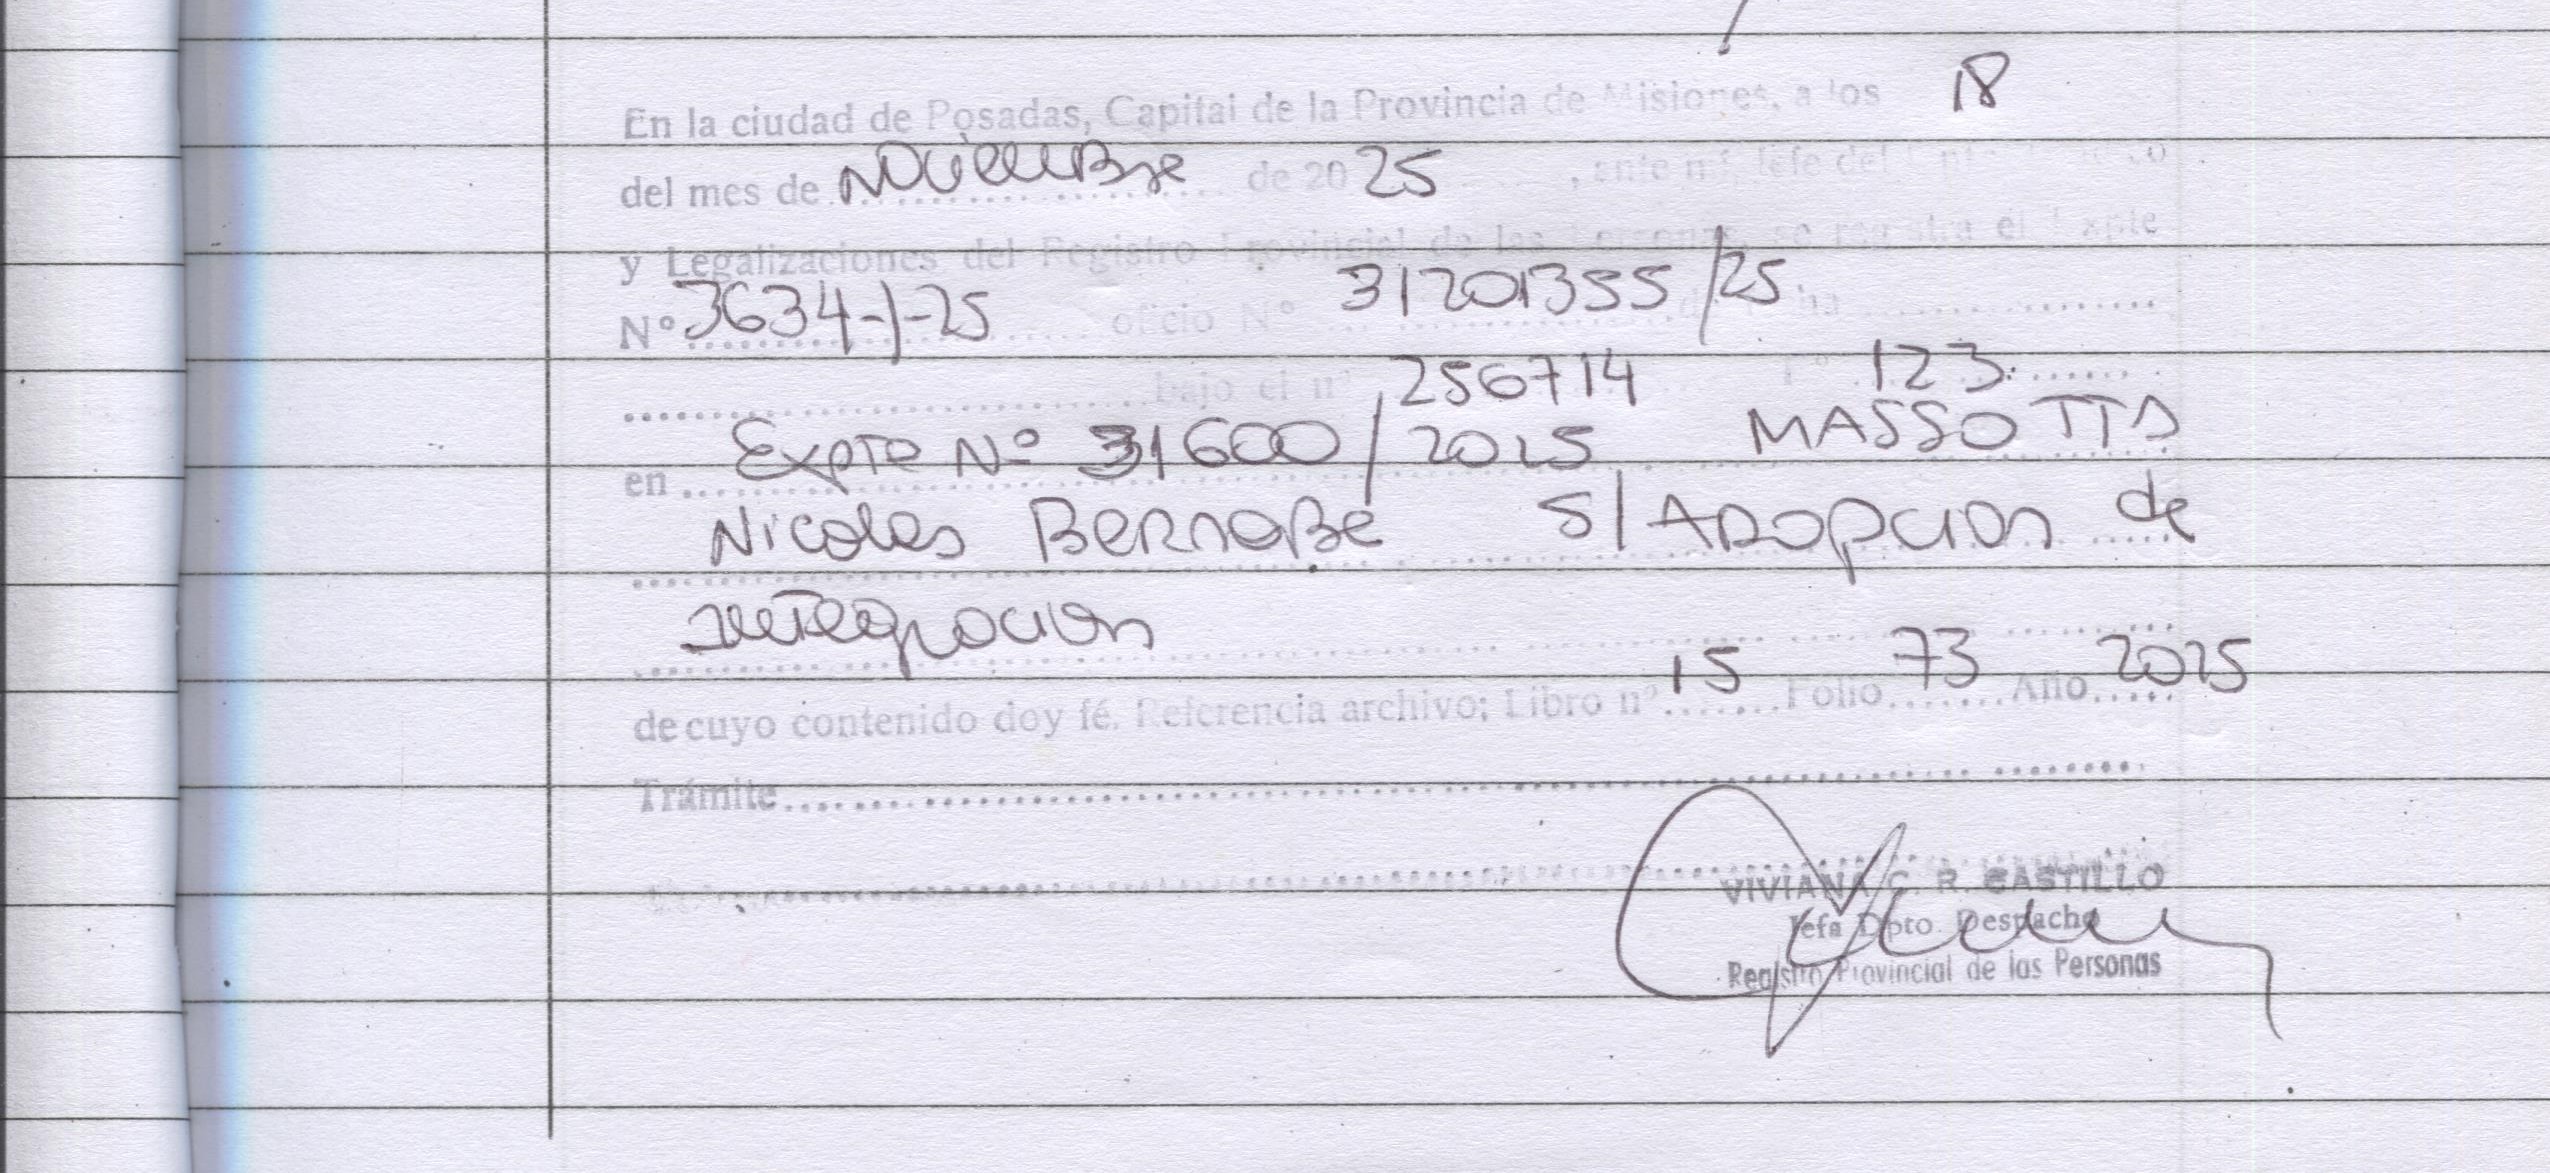 En la ciudad de Posadas, Capital de la Provincia de Misiones, a los 18
del mes de Noviembre de 20 25, ante mí, Jefe del
y Legalizaciones del Registro Provincial de las Personas, se registra el Expte
Nº 3634-J-25 oficio Nº 31201355/25 de fecha
bajo el nº 256714 Fº 123
en Expte Nº 31600/2025 MASSOTTA
Nicolas Bernabe S/ Adopcion de
Integracion
de cuyo contenido doy fé. Referencia archivo; Libro nº 15 Folio 73 Año 2025
Trámite
VIVIANA C. R. CASTILLO
Jefa Dpto. Despacho
Registro Provincial de las Personas